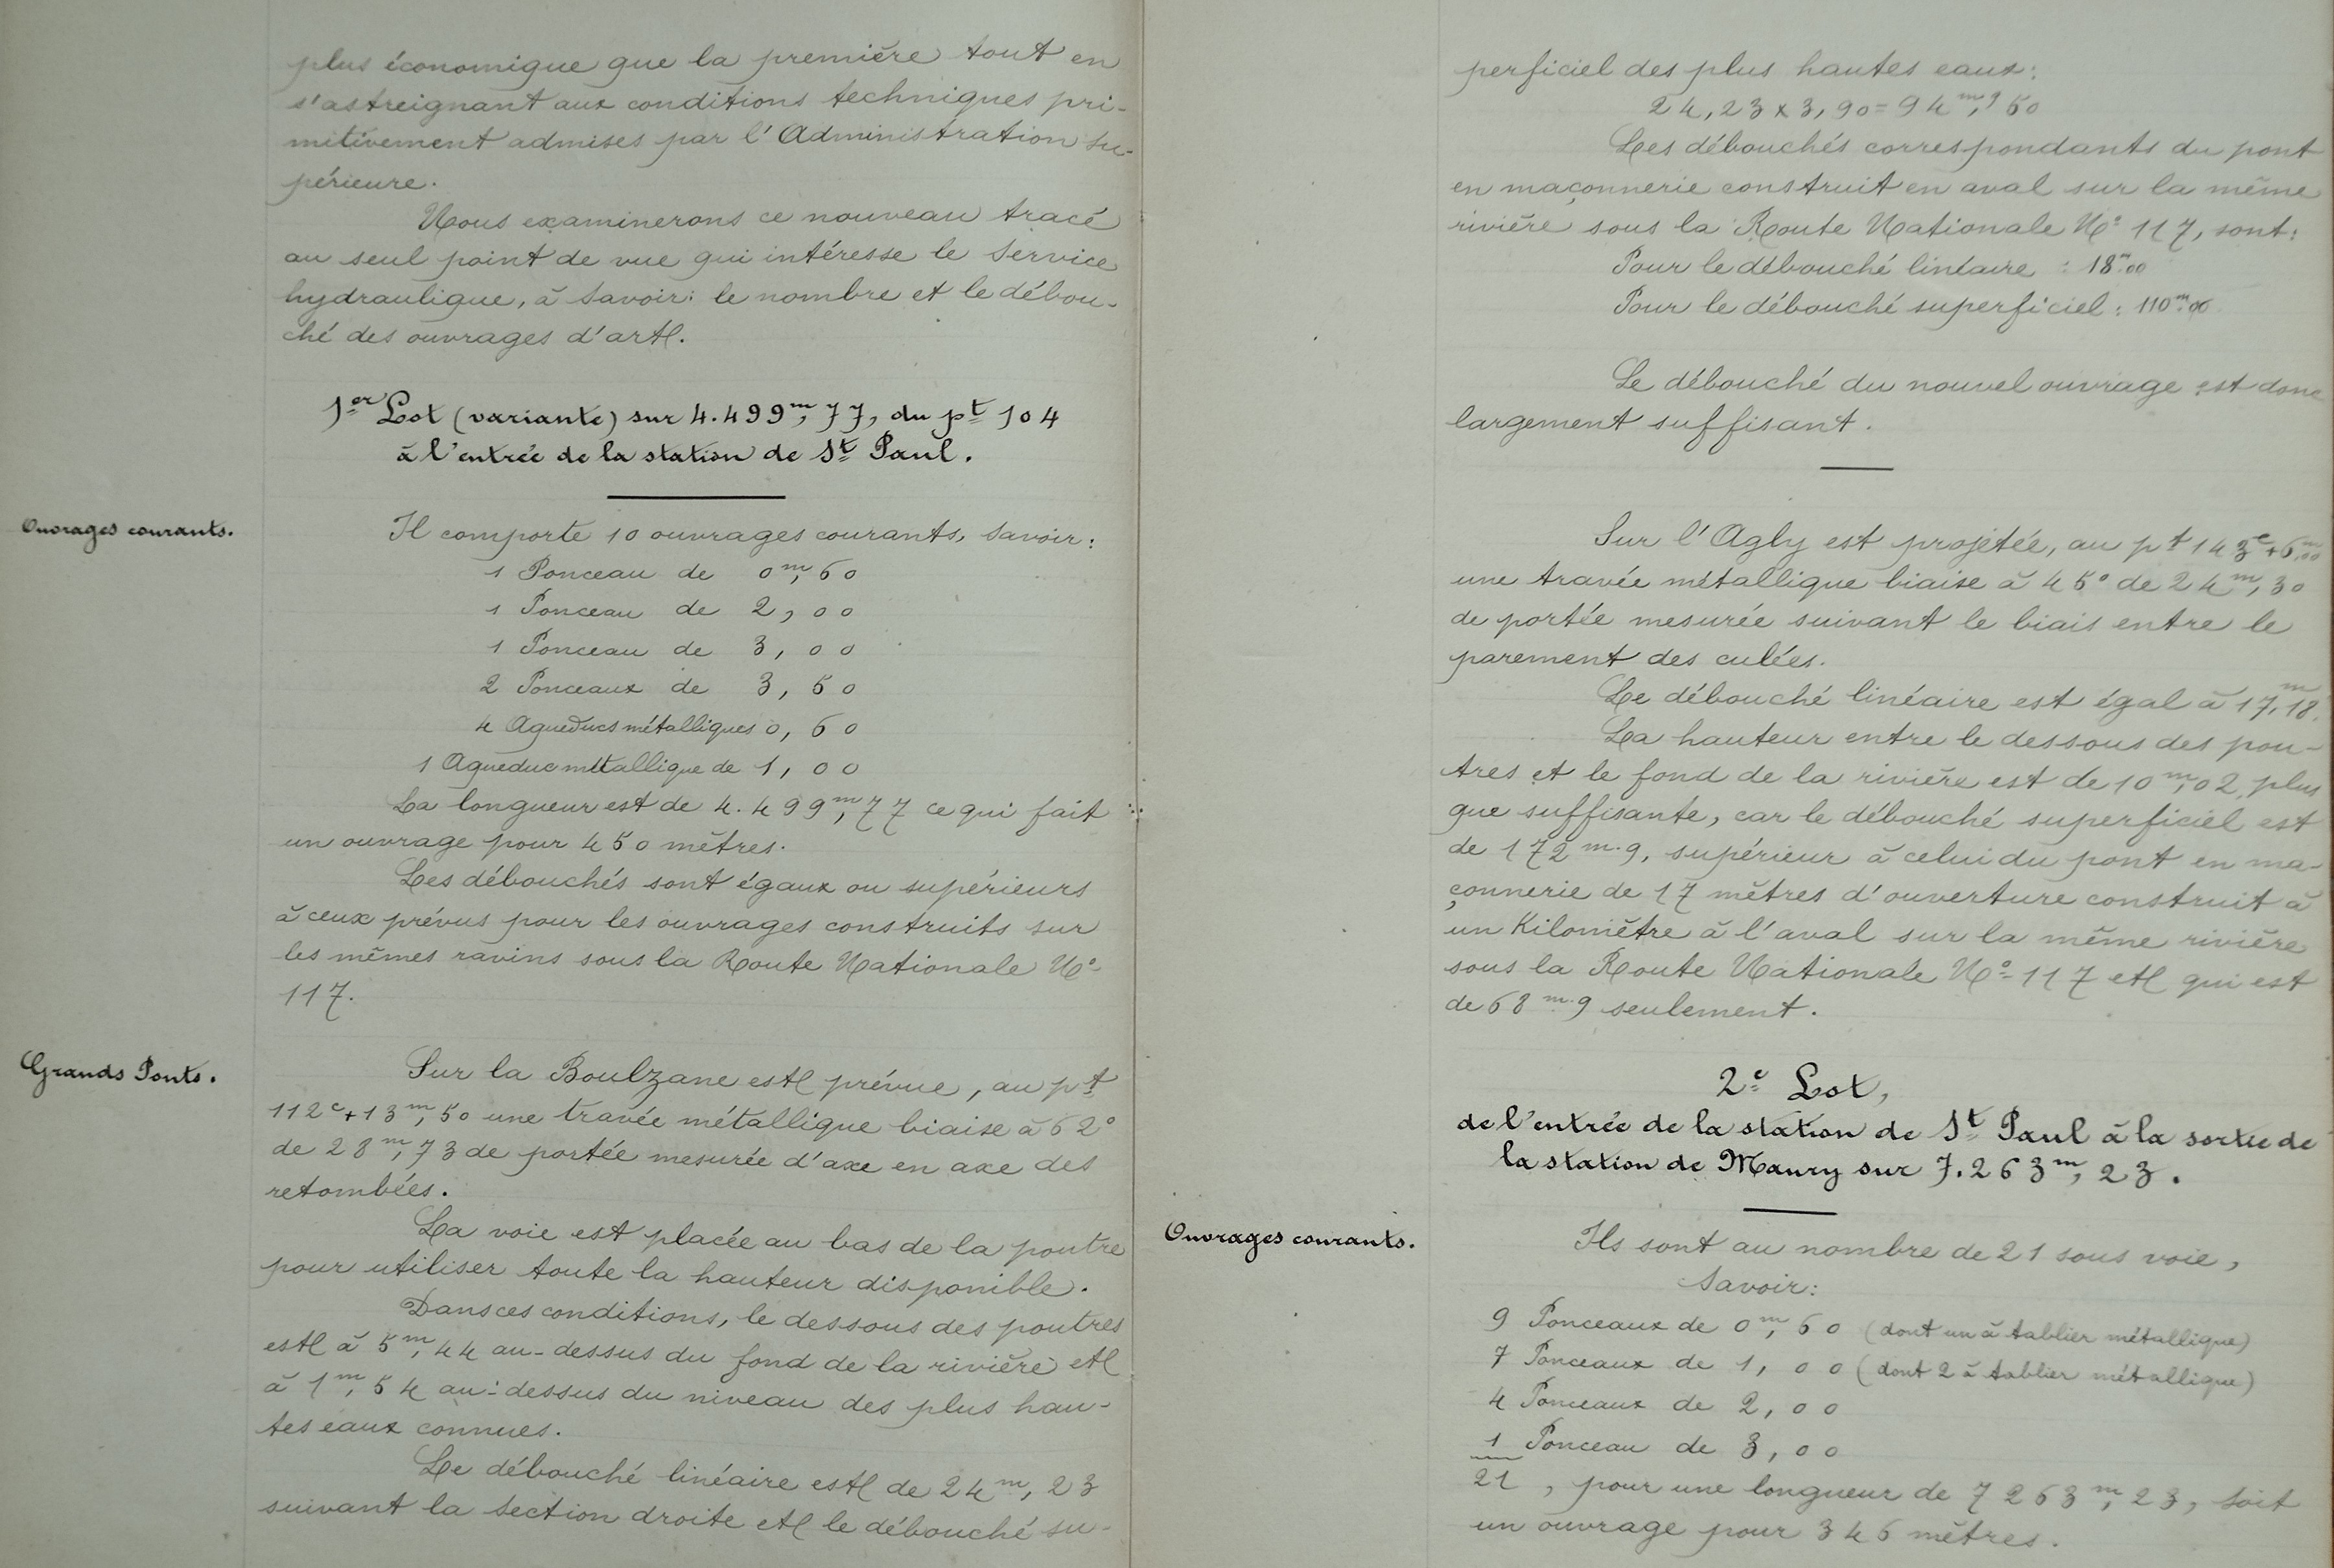 plus économique que la première tout en
s'astreignant aux conditions techniques pri-
mitivement admises par l'Administration su-
périeure.
Nous examinerons ce nouveau tracé
au seul point de vue qui intéresse le Service
hydraulique, à savoir: le nombre et le débou-
ché des ouvrages d'art.
1er Lot (variante) sur 4.499m,77, du pt 104
à l'entrée de la station de St Paul.
Ouvrages courants.
Il comporte 10 ouvrages courants, savoir:
1 Ponceau de 0m,60
1 Ponceau de 2,00
1 Ponceau de 3,00
2 Ponceaux de 3,50
4 Aqueducs métalliques 0,60
1 Aqueduc métallique de 1,00
La longueur est de 4.499m,77 ce qui fait
un ouvrage pour 450 mètres.
Les débouchés sont égaux ou supérieurs
à ceux prévus pour les ouvrages construits sur
les mêmes ravins sous la Route Nationale No
117.
Grands Ponts.
Sur la Boulzane est prévue, au pt
112c+13m,50 une travée métallique biaise à 62°
de 28m,73 de portée mesurée d'axe en axe des
retombées.
La voie est placée au bas de la poutre
pour utiliser toute la hauteur disponible.
Dans ces conditions, le dessous des poutres
est à 5m,44 au-dessus du fond de la rivière et
à 1m,54 au-dessus du niveau des plus hau-
tes eaux connues.
Le débouché linéaire est de 24m,23
suivant la section droite et le débouché su-
perficiel des plus hautes eaux:
24,23 x 3,90 = 94m,q50
Les débouchés correspondants du pont
en maçonnerie construit en aval sur la même
rivière sous la Route Nationale No 117, sont:
Pour le débouché linéaire : 18m.00
Pour le débouché superficiel : 110m.00
Le débouché du nouvel ouvrage est donc
largement suffisant.
Sur l'Agly est projetée, au pt 143c+6m,00
une travée métallique biaise à 45° de 24m,30
de portée mesurée suivant le biais entre le
parement des culées.
Le débouché linéaire est égal à 17m,18.
La hauteur entre le dessous des pou-
tres et le fond de la rivière est de 10m,02, plus
que suffisante, car le débouché superficiel est
de 172m.q, supérieur à celui du pont en ma-
çonnerie de 17 mètres d'ouverture construit à
un Kilomètre à l'aval sur la même rivière
sous la Route Nationale No 117 et qui est
de 68m.q seulement.
2e Lot,
de l'entrée de la station de St Paul à la sortie de
la station de Maury sur 7.263m,23.
Ouvrages courants.
Ils sont au nombre de 21 sous voie,
Savoir:
9 Ponceaux de 0m,60 (dont un à tablier métallique)
7 Ponceaux de 1,00 (dont 2 à tablier métallique)
4 Ponceaux de 2,00
1 Ponceau de 3,00
21, pour une longueur de 7263m,23, soit
un ouvrage pour 346 mètres.